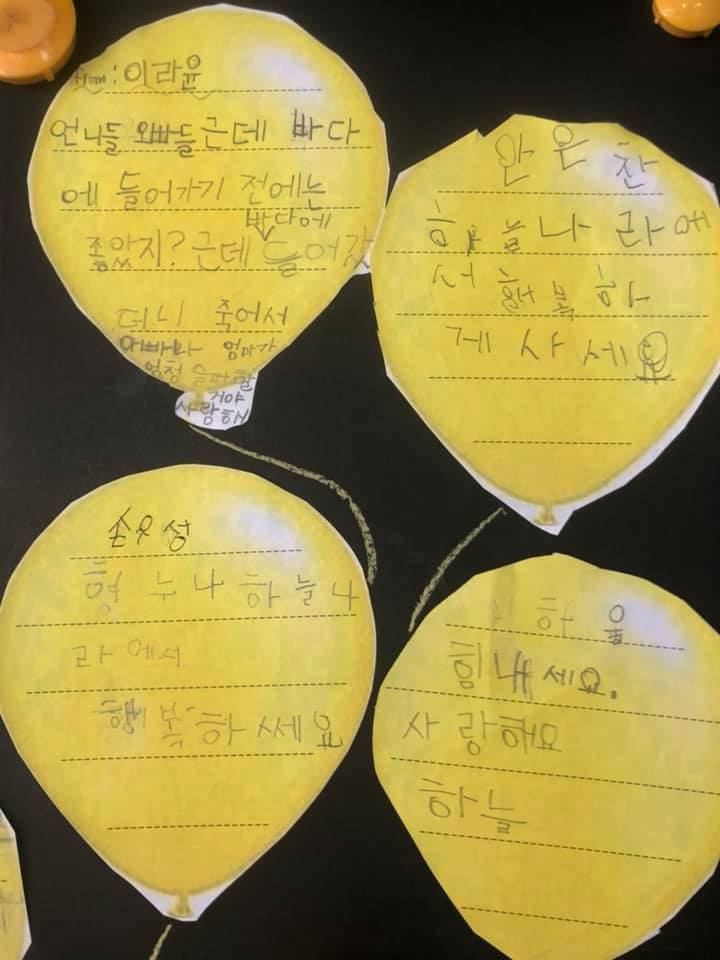 from: 이라윤
언니들 오빠들 근데 바다
에 들어가기 전에는
바다에
좋았지? 근데 들어갔
더니 죽어서
아빠나 엄마가
엄청 슬퍼할
거야
사랑해
안은찬
하늘나라에
서 행복하
게 사세요
손유성
형 누나 하늘나
라에서
행복하쎄요
하율
힘내세요.
사랑해요
하늘